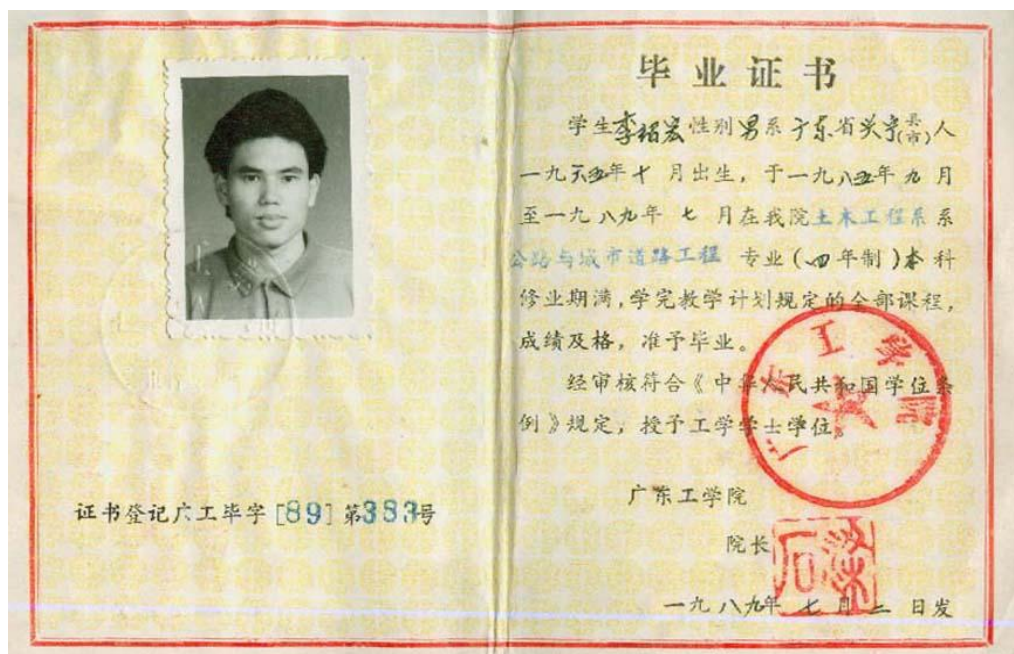 毕业证书
学生李招宏性别男系广东省兴宁县(市)人
一九六五年十月出生，于一九八五年九月
至一九八九年七月在我院土木工程系系
公路与城市道路工程 专业(四年制)本科
修业期满,学完教学计划规定的全部课程,
成绩及格，准予毕业。
经审核符合《中华人民共和国学位条
例》规定，授予工学学士学位。
广东工学院
广东工学院
院长
一九八九年七月二日发
证书登记广工毕字[89]第383号